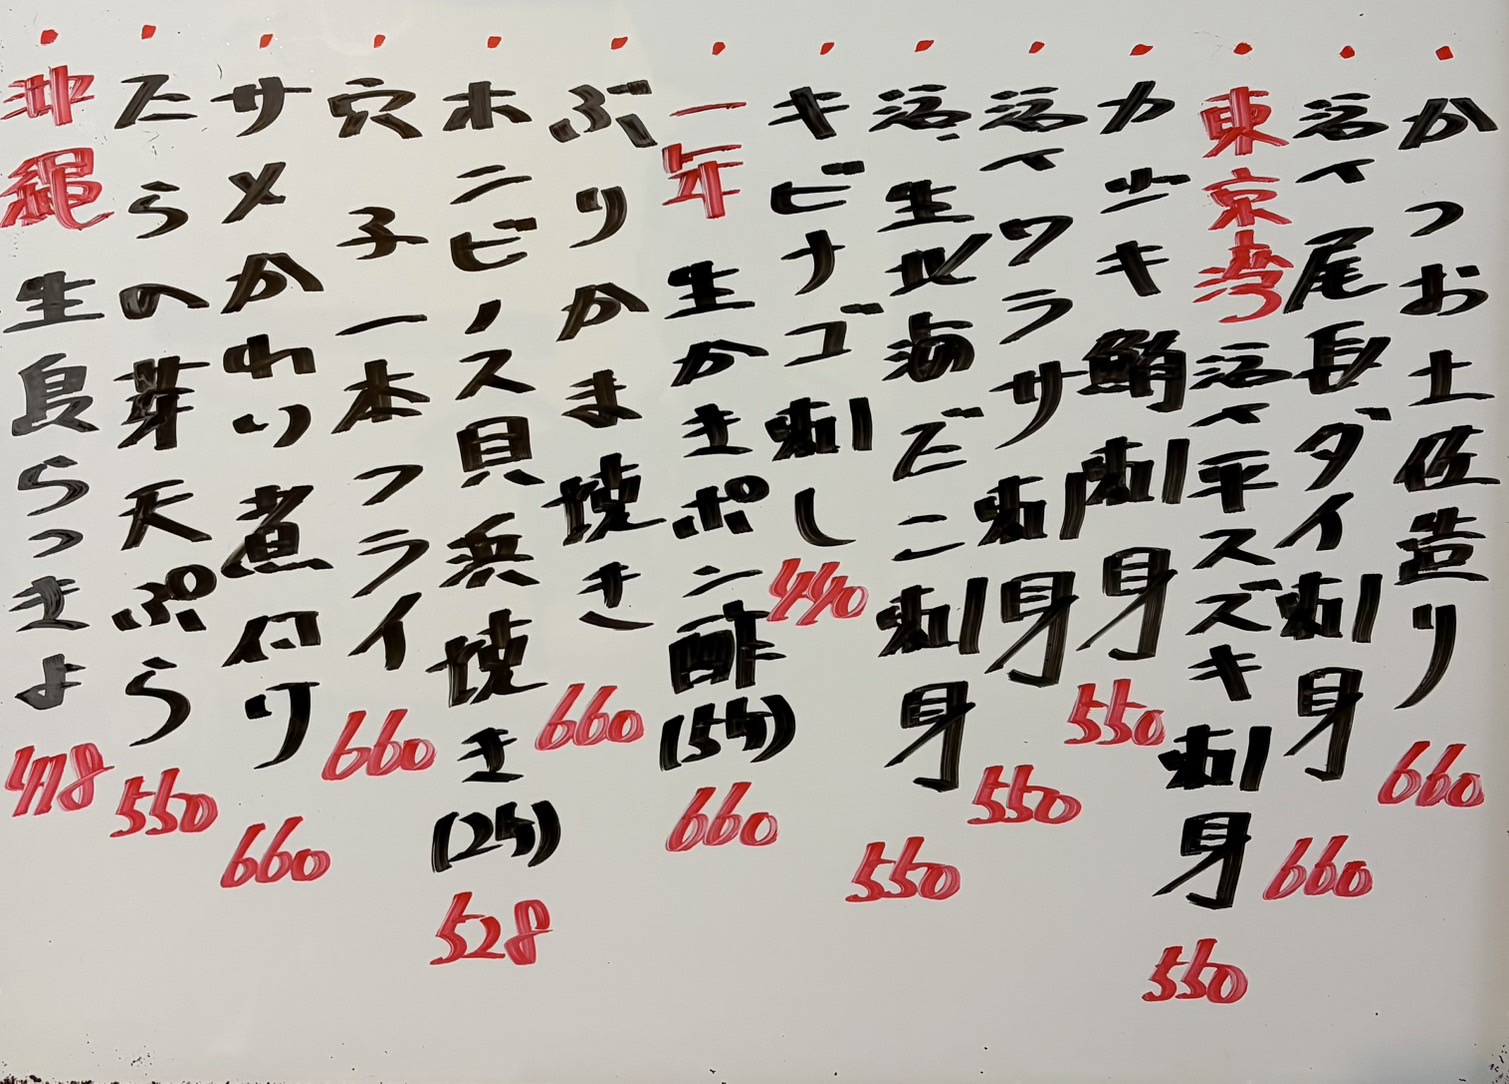 かつお土佐造り 660
活〆尾長ダイ刺身 660
東京湾活〆平スズキ刺身 550
カジキ鮪刺身 550
活〆ワラサ刺身 550
活生北海だこ刺身 550
キビナゴ刺し 440
一年生かきポン酢(5ケ) 660
ぶりかま焼き 660
ホンビノス貝浜焼き(2ケ) 528
穴子一本フライ 660
サメかれい煮付け 660
たらの芽天ぷら 550
沖縄生島らっきょ 478